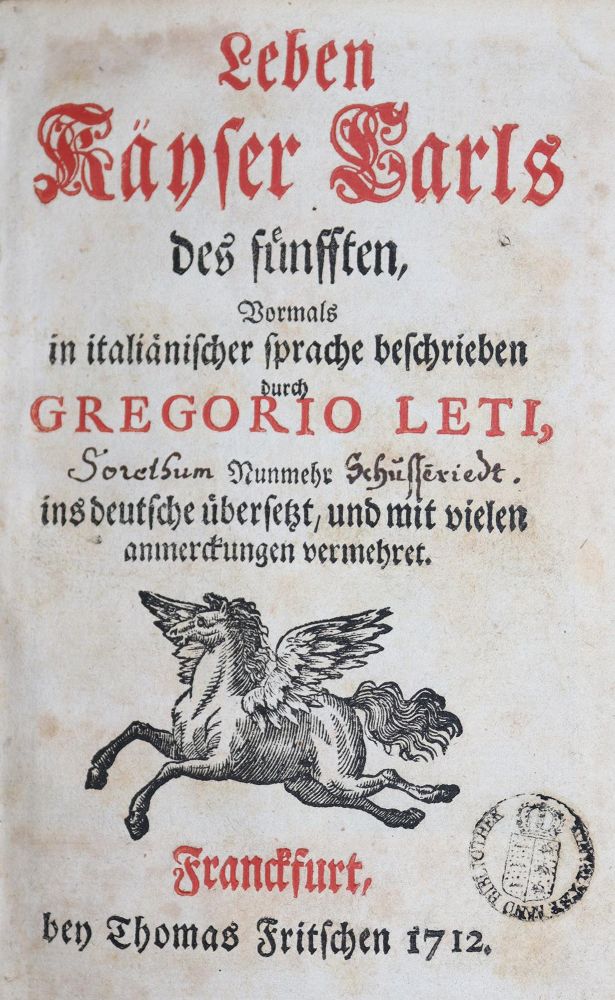 Leben
Käyser Carls
des fünfften,
Vormals
in italiänischer sprache beschrieben
durch
GREGORIO LETI,
Sorethum Nunmehr Schüsseriedt.
ins deutsche übersetzt, und mit vielen
anmerckungen vermehret.
Franckfurt,
bey Thomas Fritschen 1712.
BIBLIOTHEK